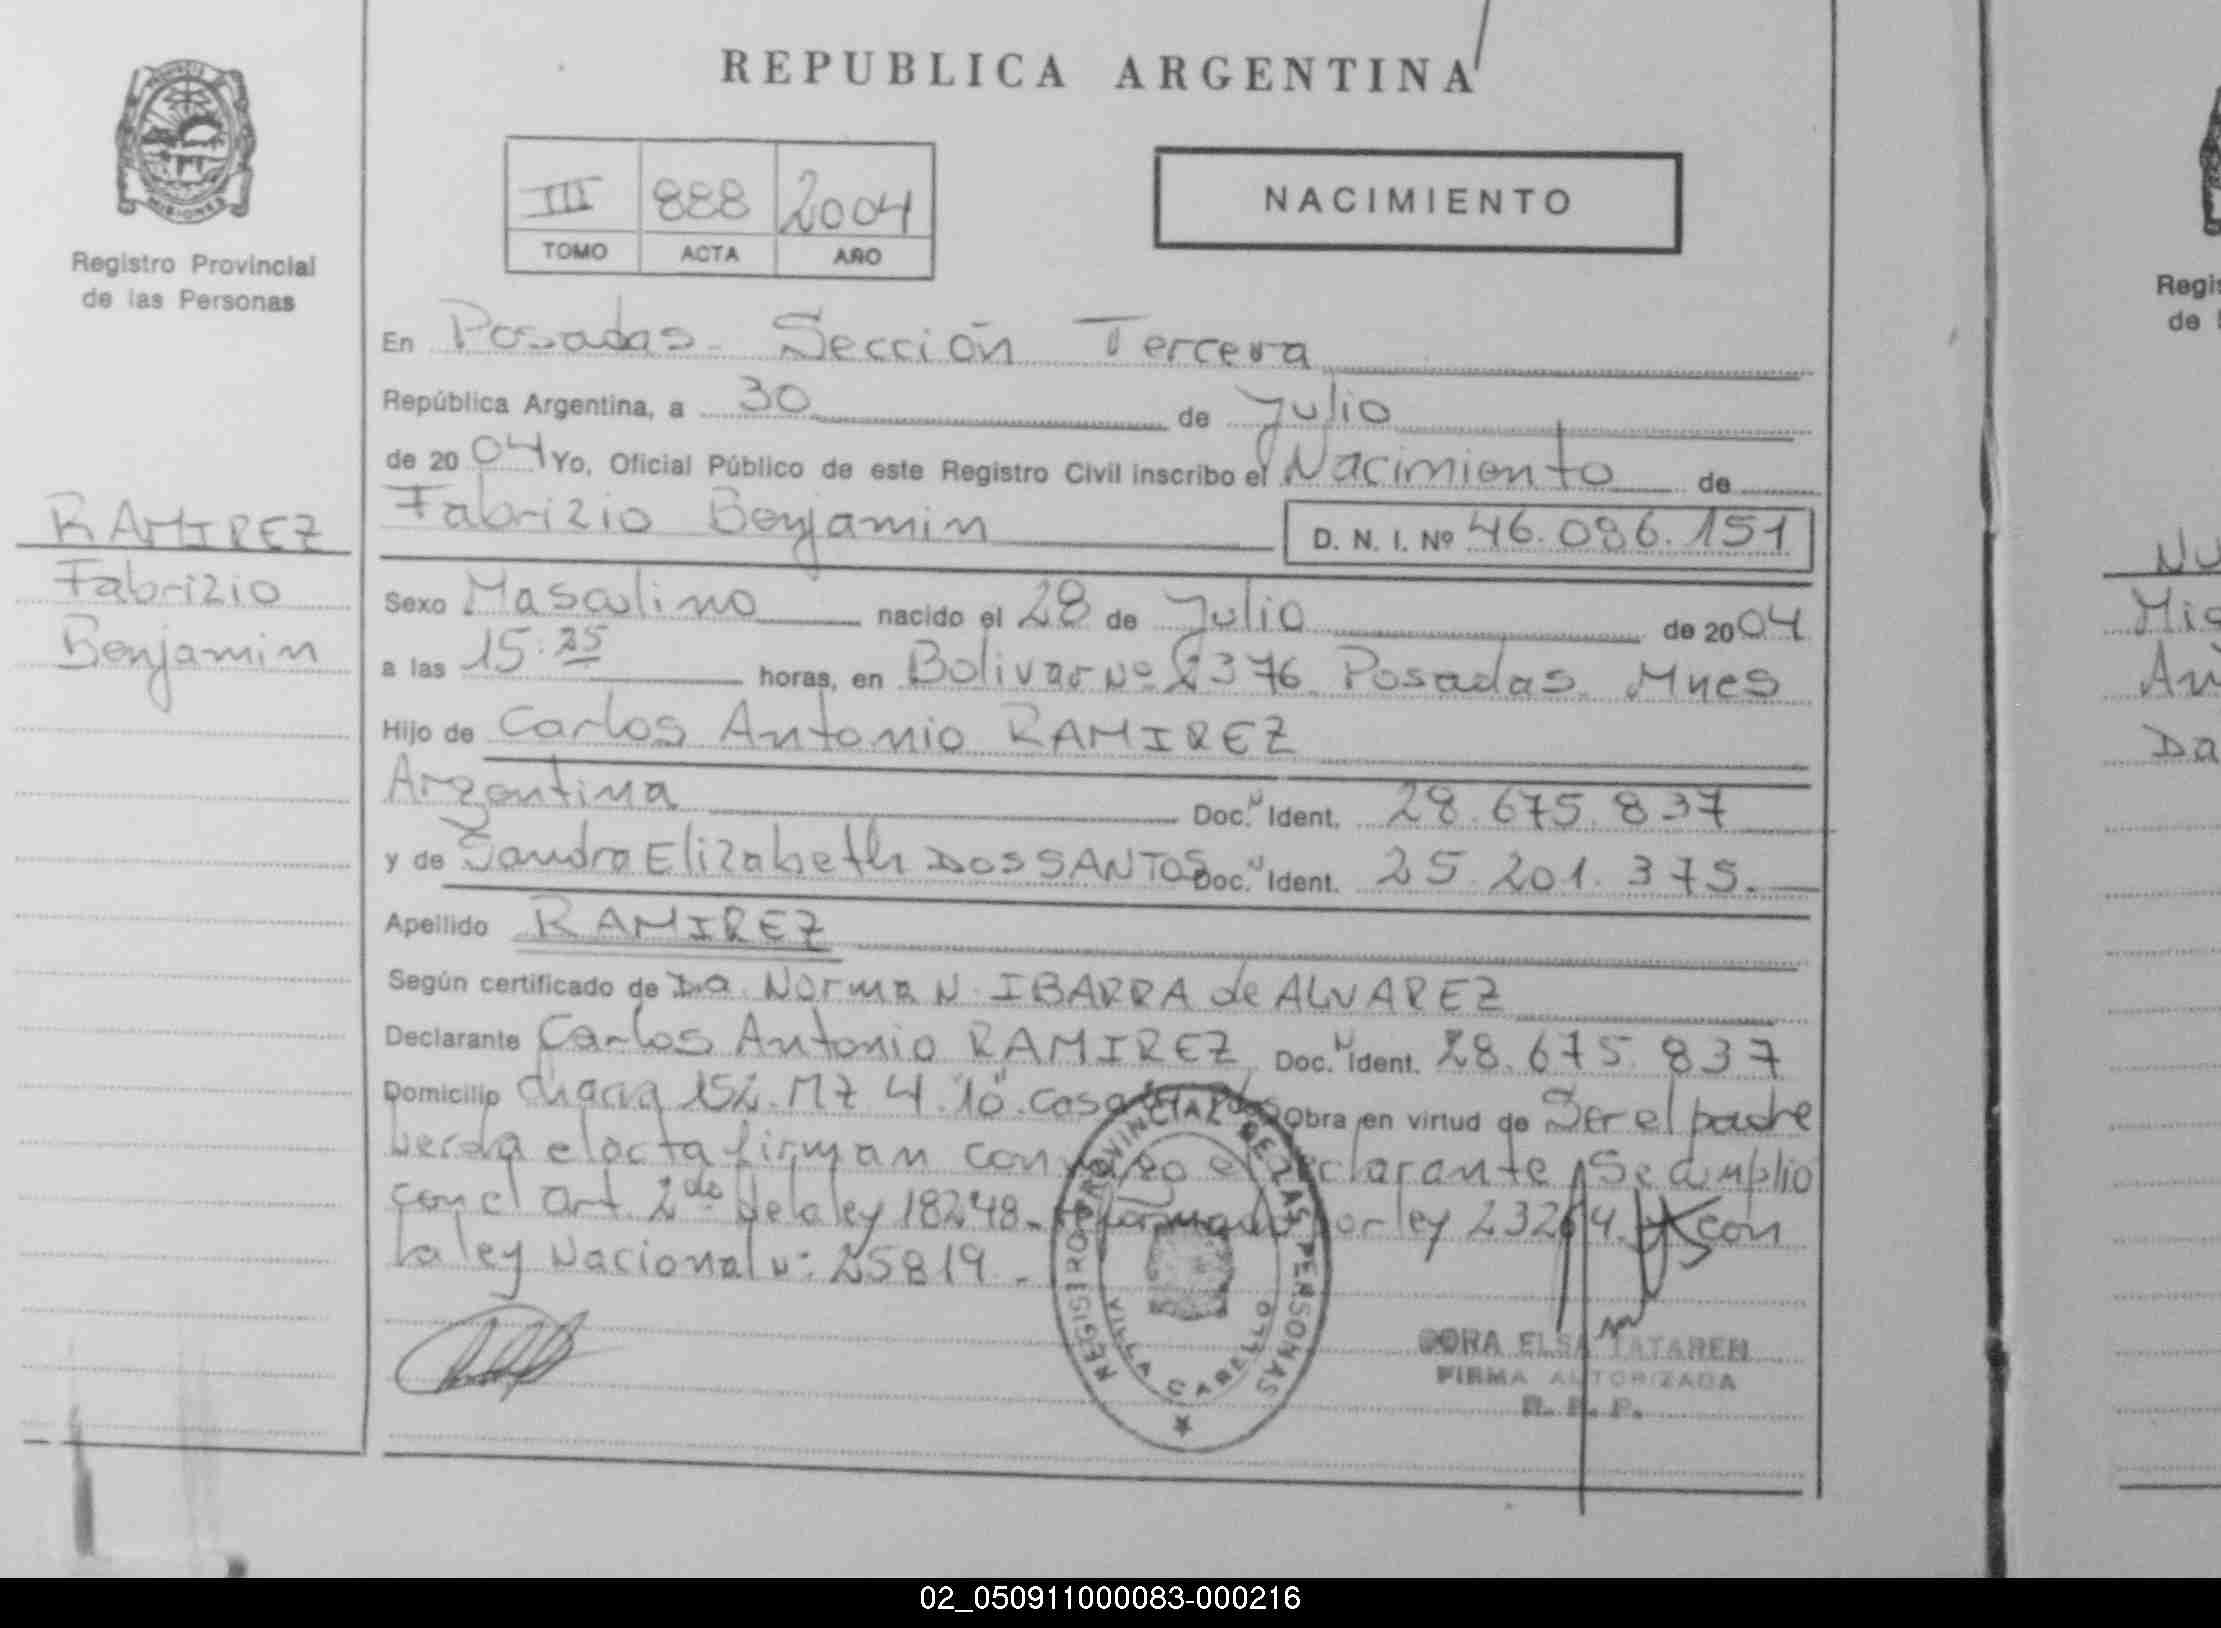 REPUBLICA ARGENTINA
PROVINCIA
MISIONES
Registro Provincial
de las Personas
III 888 2004
TOMO ACTA AÑO
NACIMIENTO
En Posadas - Sección Tercera
República Argentina, a 30 de Julio
de 20 04 Yo, Oficial Público de este Registro Civil inscribo el Nacimiento de
Fabrizio Benjamin D. N. I. Nº 46.096.151
RAMIREZ
Fabrizio
Benjamin
Sexo Masculino nacido el 28 de Julio de 20 04
a las 15:25 horas, en Bolivar Nº 2376 Posadas. Mnes
Hijo de Carlos Antonio RAMIREZ
Argentina Doc. N Ident. 28.675.837
y de Sandra Elizabeth DOS SANTOS Doc. N Ident. 25.201.375.
Apellido RAMIREZ
Según certificado de Da. Norma N. IBARRA de ALVAREZ
Declarante Carlos Antonio RAMIREZ Doc. N Ident. 28.675.837
Domicilio Chacra 152. Mz 4. 10. casa Obra en virtud de Ser el padre
el acta firman conmigo el declarante Se cumplio
con el art. 2do de la ley 18248 - reformado por ley 23264. con
la ley Nacional N: 25819 -
REGISTRO PROVINCIAL DE LAS PERSONAS
VILLA CABELLO
DORA ELSA TATAREN
FIRMA AUTORIZADA
R. P. P.
Regis
de l
Nu
Mig
An
Da
02_050911000083-000216